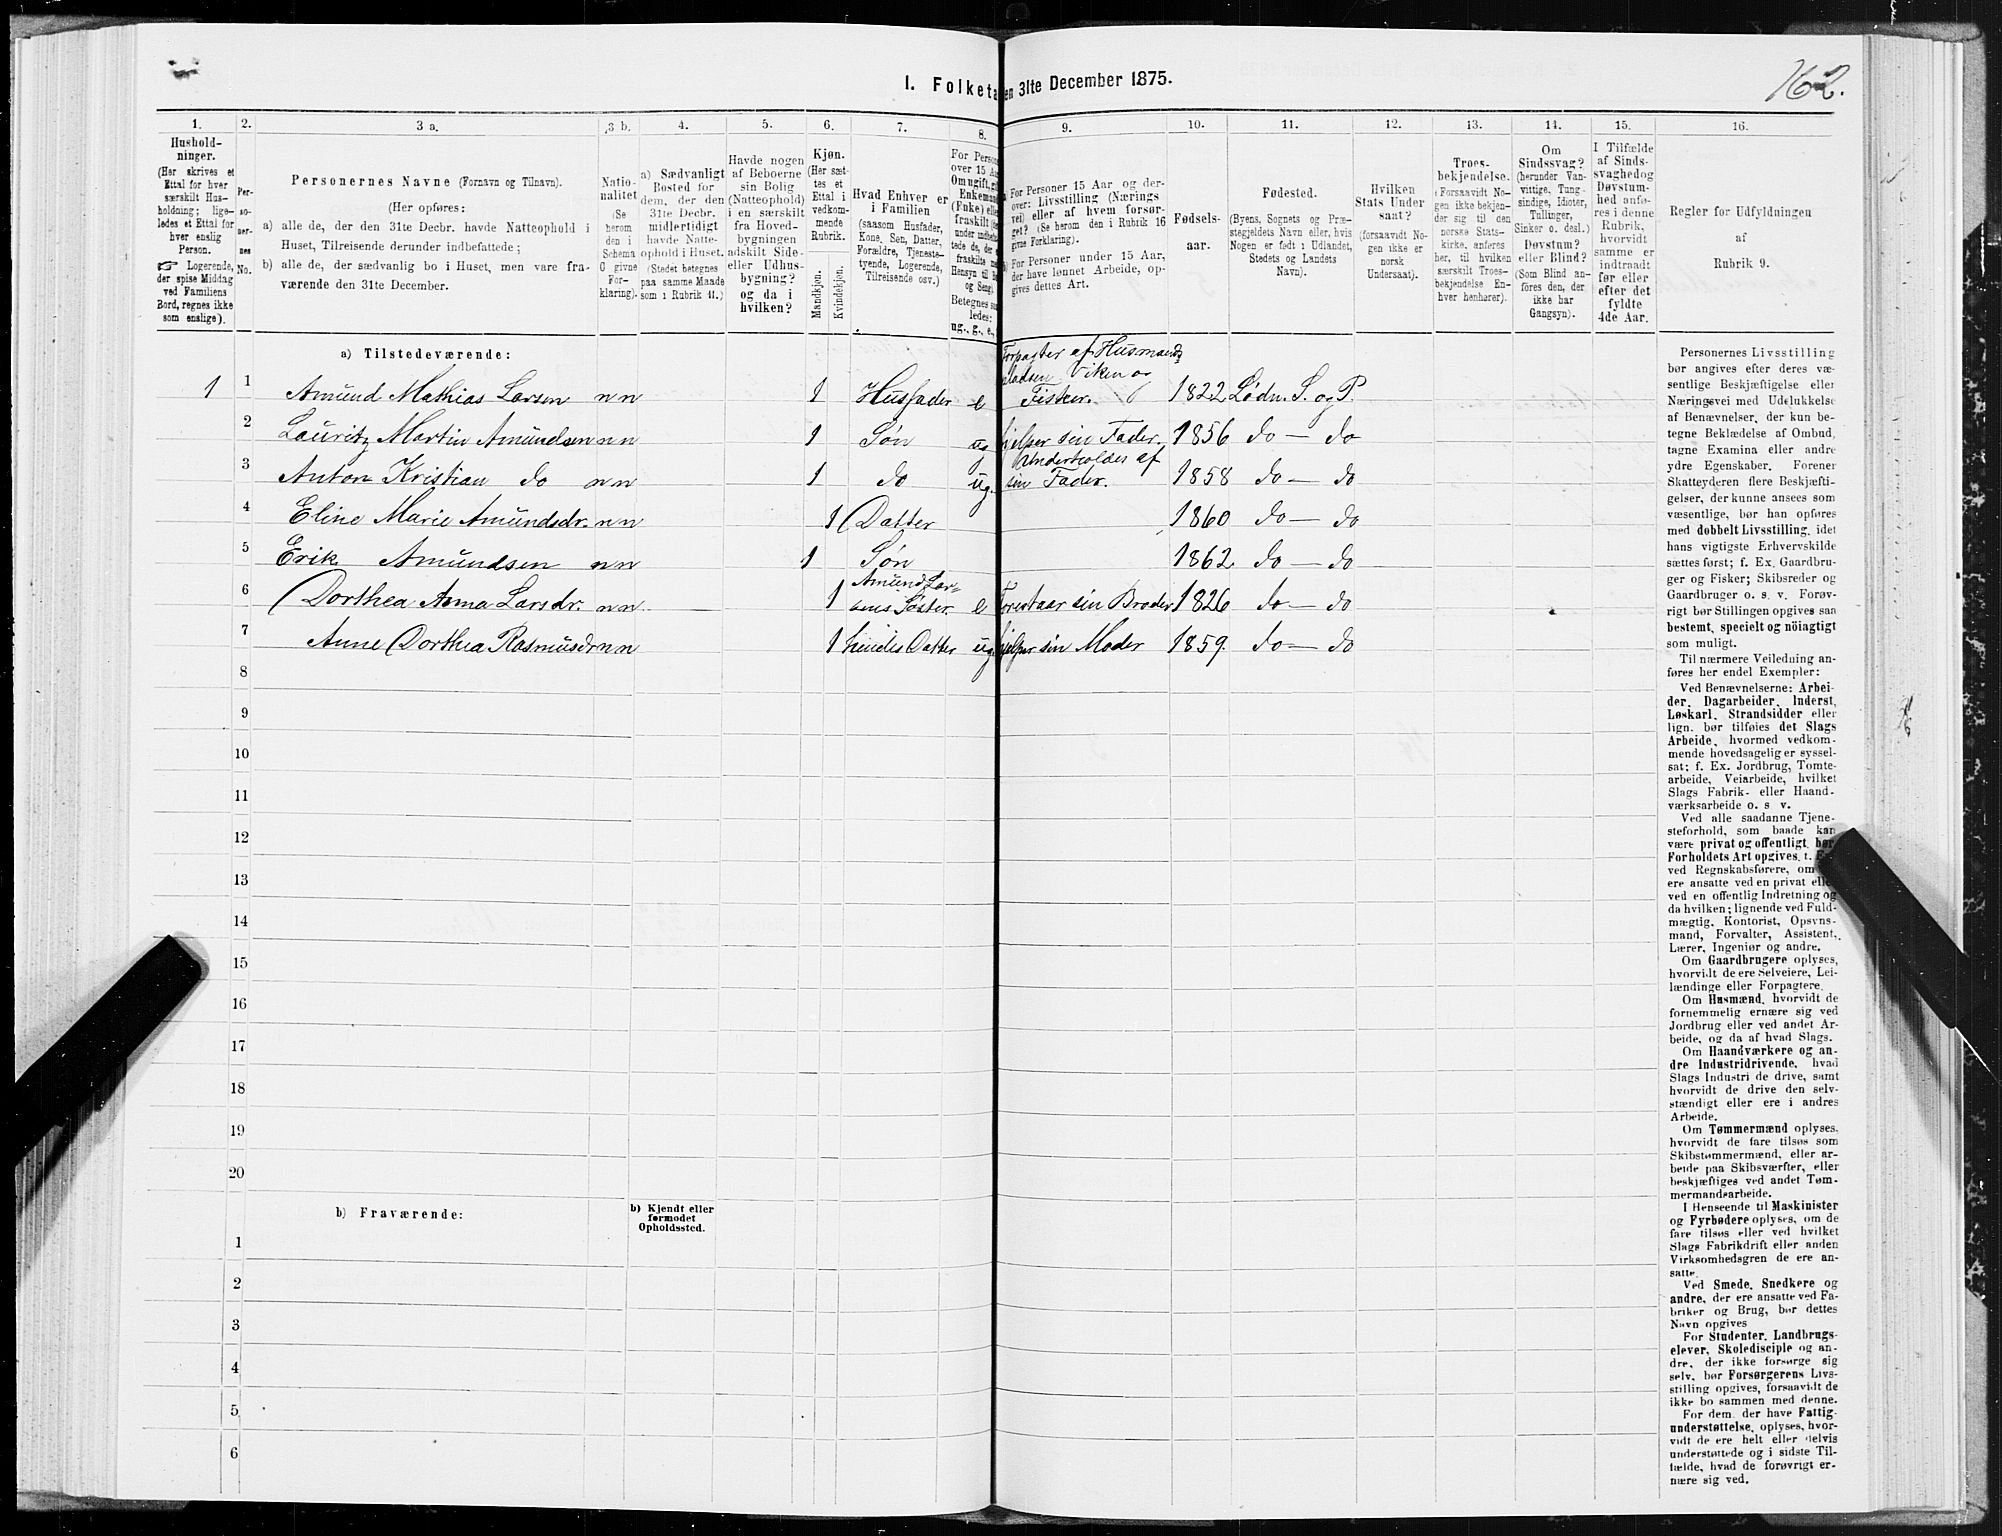 162.
I. Folketa
en 31te December 1875.
1. 2. 3 a. 3 b. 4. 5. 6. 7. 8. 9. 10. 11. 12. 13. 14. 15. 16.
Hushold-
ninger.
(Her skrives et
Ettal for hver
særskilt Hus-
holdning; lige-
ledes et Ettal for
hver enslig
Person.
☞ Logerende,
der spise Middag
ved Familiens
Bord, regnes ikke
som enslige).
Per-
so-
ner-
nes
No.
Personernes Navne (Fornavn og Tilnavn).
(Her opføres:
a) alle de, der den 31te Decbr. havde Natteophold i
Huset, Tilreisende derunder indbefattede;
b) alle de, der sædvanlig bo i Huset, men vare fra-
værende den 31te December.
Natio-
nalitet
(Se
herom
den i
Schema
G givne
For-
klaring).
a) Sædvanligt
Bosted for
dem, der den
31te Decbr.
midlertidigt
havde Natte-
ophold i Huset.
(Stedet betegnes
paa samme Maade
som i Rubrik 11.)
Havde nogen
af Beboerne
sin Bolig
(Natteophold)
i en særskilt
fra Hoved-
bygningen
adskilt Side-
eller Udhus-
bygning?
og da i
hvilken?
Kjøn.
(Her sæt-
tes et
Ettal i
vedkom-
mende
Rubrik.
Mandkjøn.
Kvindekjøn.
Hvad Enhver er
i Familien
(saasom Husfader,
Kone, Søn, Datter,
Forældre, Tjeneste-
tyende, Logerende,
Tilreisende osv.)
For Person
over 15 Aa
Om ugift, gi
Enkeman
(Fnke) elle
fraskilt
under indbefat-
tede de, der e
fraskilte m
Hensyn til B
og Seng
Betegnes s
ledes:
ug., g., e.,
For Personer 15 Aar og der-
over: Livsstilling (Nærings
vei) eller af hvem forsør-
get? (Se herom den i Rubrik 16
givne Forklaring).
For Personer under 15 Aar,
der have lønnet Arbeide, op-
gives dettes Art.
Fødsels-
aar.
Fødested.
(Byens, Sognets og Præ-
stegjeldets Navn eller, hvis
Nogen er født i Udlandet,
Stedets og Landets
Navn).
Hvilken
Stats Under
saat?
(forsaavidt No-
gen ikke er
norsk
Undersaat).
Troes-
bekjendelse.
(Forsaavidt No-
gen ikke bekjen-
der sig til den
norske Stats-
kirke, anføres
her, til hvilken
særskilt Troes-
bekjendelse En-
hver henhører).
Om
Sindssvag?
(herunder Van-
vittige, Tung-
sindige, Idioter,
Tullinger,
Sinker o. desl.)
Døvstum?
eller Blind?
(Som Blind an-
føres den, der
ikke har
Gangsyn).
I Tilfælde
af Sinds-
svaghed og
Døvstum-
hed anfø-
res i denne
Rubrik,
hvorvidt
samme er
indtraadt
før eller
efter det
fyldte
4de Aar.
Regler for Udfyldningen
af
Rubrik 9.
a) Tilstedeværende:
Forpagter af Husmands
pladsen Viken og
1 1 Amund Mathias Larsen n n 1 Husfader e Fisker. 1822 Lødn. S. og P.
2 Lauritz Martin Amundsen n n 1 Søn ug hjelper sin Fader. 1856 do — do
Underholdes af
3 Anton Kristian do n n 1 do ug. sin Fader. 1858 do — do
4 Eline Marie Amundsdr. n n 1 Datter 1860 do — do
5 Erik Amundsen n n 1 Søn 1862 do — do
Amund Lar-
6 Dorthea Anna Larsdr. n n 1 sens Søster e Forestaar sin Broder 1826 do — do
7 Anne Dorthea Rasmusdr n n 1 hendes Datter ug. hjelper sin Moder 1859. do — do
8
9
10
11
12
13
14
15
16
17
18
19
20
b) Fraværende:
b) Kjendt eller
formodet
Opholdssted.
1
2
3
4
5
6
Personernes Livsstilling
bør angives efter deres væ-
sentlige Beskjæftigelse eller
Næringsvei med Udelukkelse
af Benævnelser, der kun be-
tegne Beklædelse af Ombud,
tagne Examina eller andre
ydre Egenskaber. Forener
Skatteyderen flere Beskjæfti-
gelser, der kunne ansees som
væsentlige, bør han opføres
med dobbelt Livsstilling, idet
hans vigtigste Erhvervskilde
sættes først; f. Ex. Gaardbru-
ger og Fisker; Skibsreder og
Gaardbruger o. s. v. Forøv-
rigt bør Stillingen opgives saa
bestemt, specielt og nøiagtigt
som muligt.
Til nærmere Veiledning an-
føres her endel Exempler:
Ved Benævnelserne: Arbei-
der, Dagarbeider, Inderst,
Løskarl, Strandsidder eller
lign. bør tilføies det Slags
Arbeide, hvormed vedkom-
mende hovedsagelig er syssel-
sat; f. Ex. Jordbrug, Tomte-
arbeide, Veiarbeide, hvilket
Slags Fabrik- eller Haand-
værksarbeide o. s v.
Ved alle saadanne Tjene-
steforhold, som baade kan
være privat og offentligt, bør
Forholdets Art opgives, f. E
ved Regnskabsførere, om
ere ansatte ved en privat elle
ved en offentlig Indretning og
da hvilken; lignende ved Fuld-
mægtig, Kontorist, Opsyns-
mand, Forvalter, Assistent,
Lærer, Ingeniør og andre.
Om Gaardbrugere oplyses,
hvorvidt de ere Selveiere, Lei-
lændinge eller Forpagtere.
Om Husmænd, hvorvidt de
fornemmelig ernære sig ved
Jordbrug eller ved andet Ar-
beide, og da af hvad Slags.
Om Haandværkere og an-
dre Industridrivende, hvad
Slags Industri de drive, samt
hvorvidt de drive den selv-
stændigt eller ere i andres
Arbeide.
Om Tømmermænd oplyses,
hvorvidt de fare tilsøs som
Skibstømmermænd, eller ar-
beide paa Skibsværfter, eller
beskjæftiges ved andet Tøm-
mermandsarbeide.
I Henseende til Maskinister
og Fyrbødere oplyses, om de
fare tilsøs eller ved hvilket
Slags Fabrikdrift eller anden
Virksomhedsgren de ere an-
satte.
Ved Smede, Snedkere og
andre, der ere ansatte ved Fa-
briker og Brug, bør dettes
Navn opgives
For Studenter, Landbrugs-
elever, Skoledisciple og an-
dre, der ikke forsørge sig
selv, bør Forsørgerens Livs-
stilling opgives, forsaavidt de
ikke bo sammen med denne.
For dem, der have Fattig-
understøttelse, oplyses, hvor-
vidt de ere helt eller delvis
understøttede og i sidste Til-
fælde, hvad de forøvrigt er-
nære sig ved.